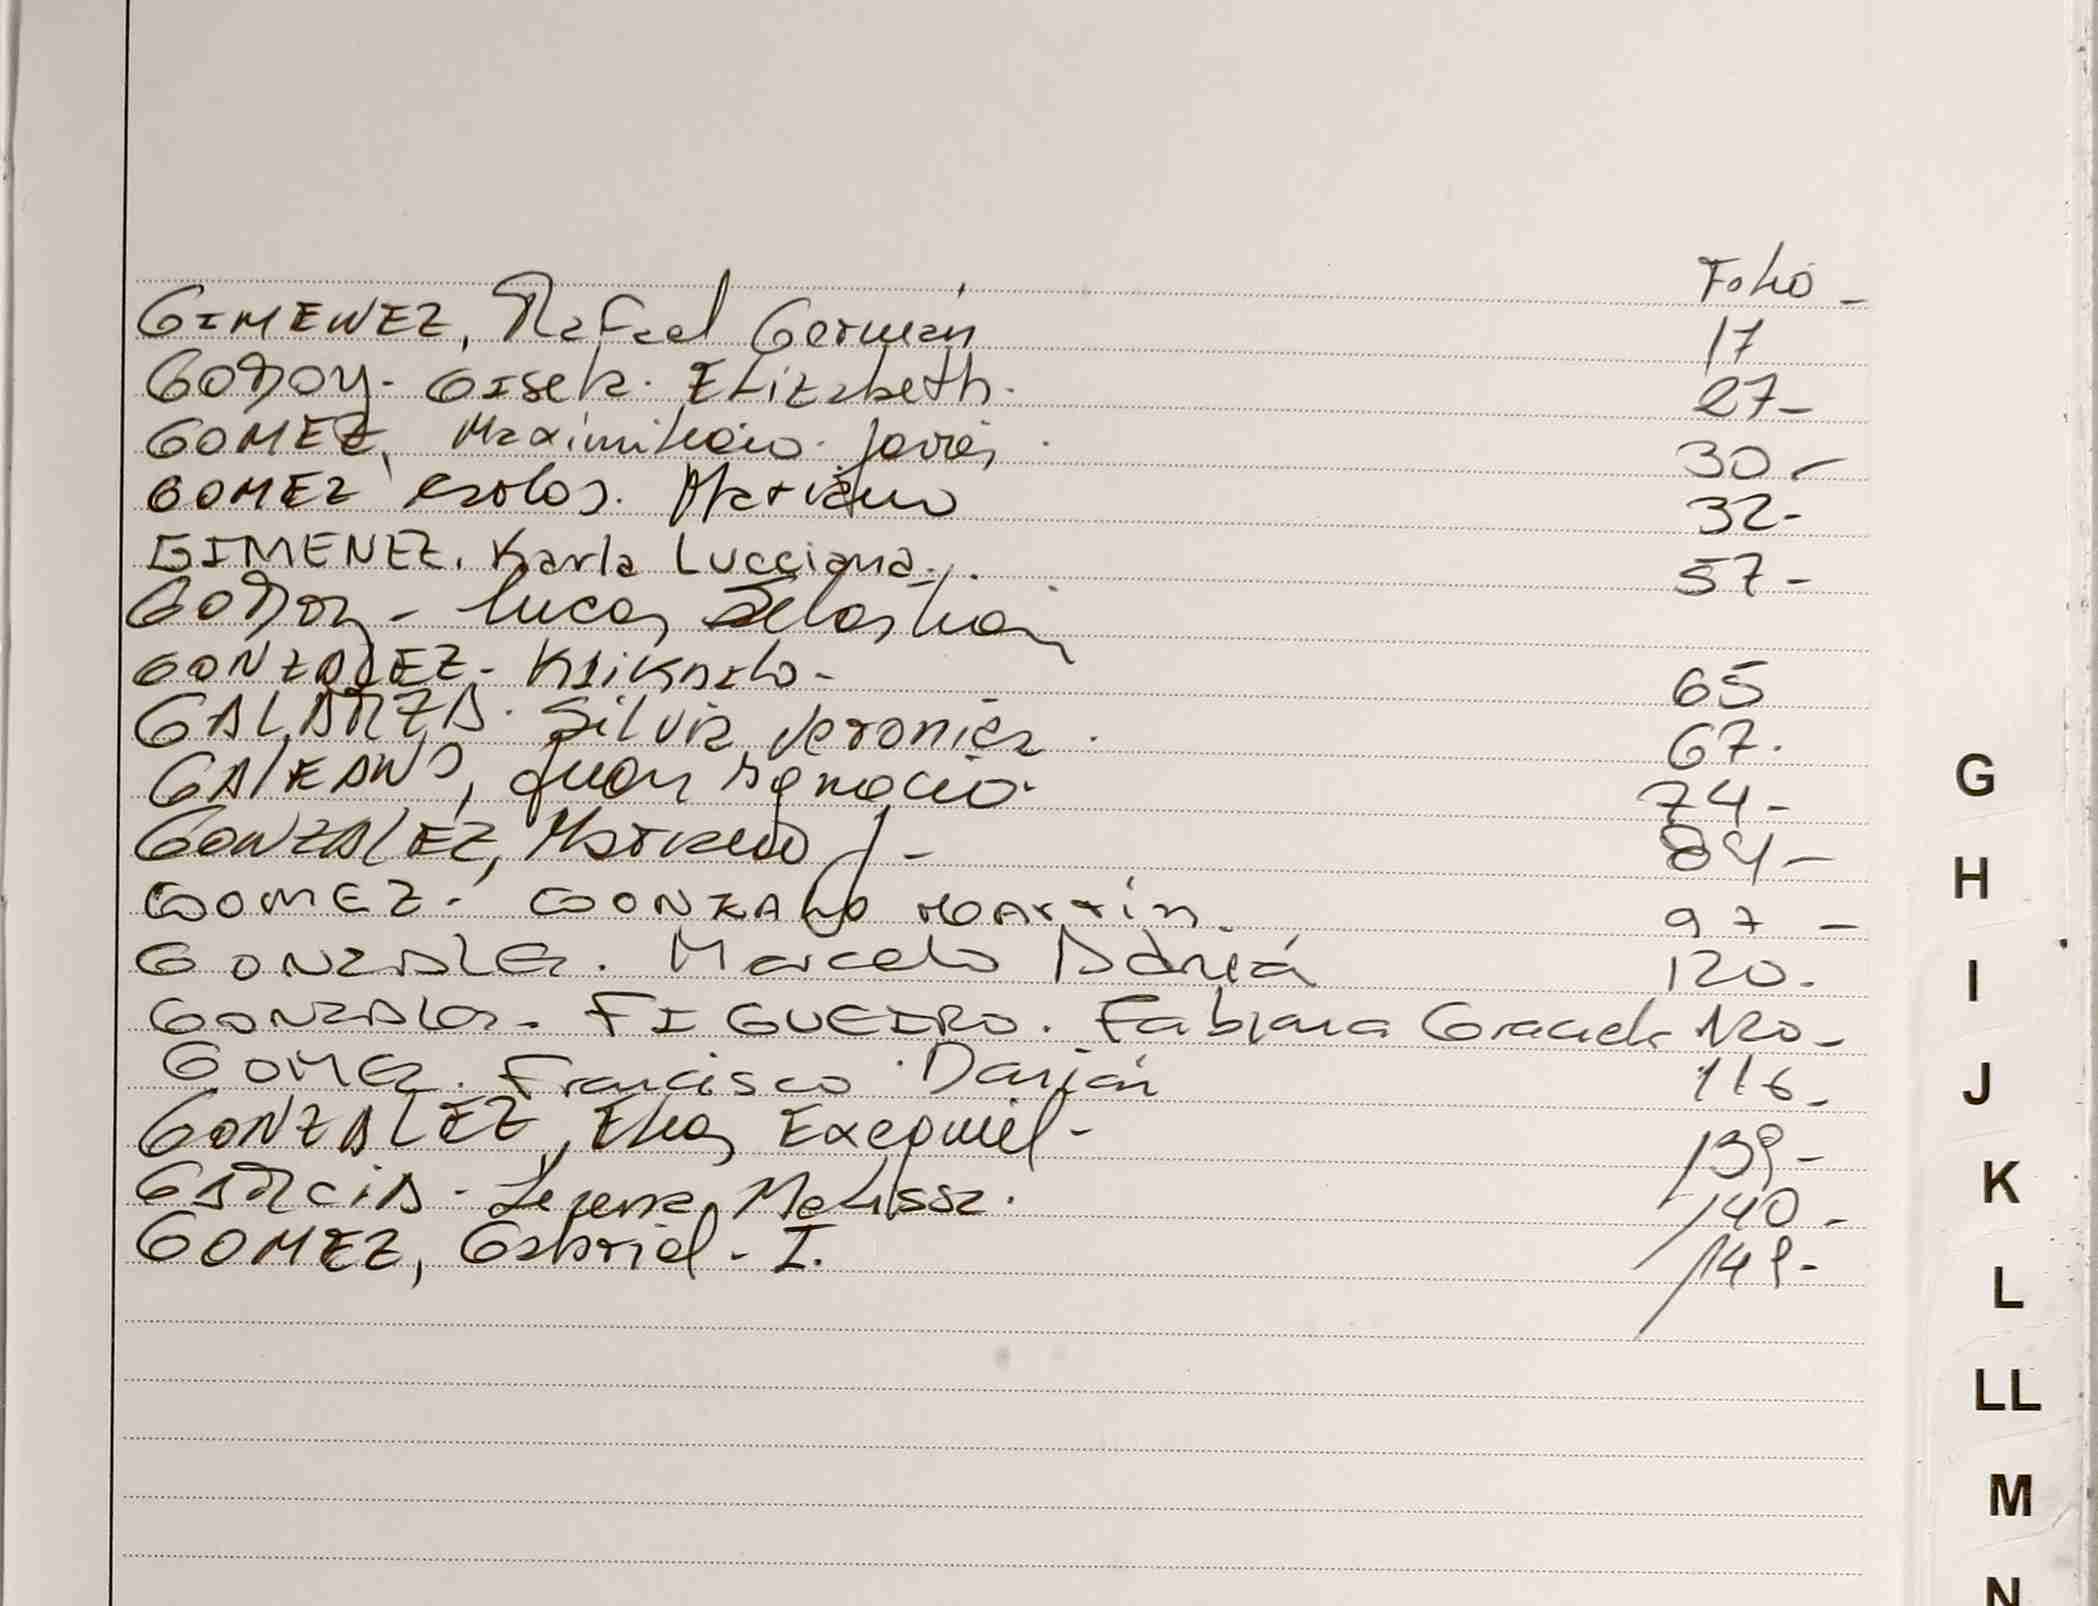 Folio -
GIMENEZ, Rafael Germán 17
GODOY - GISela. Elizabeth. 27-
GOMEZ, Maximiliano. Javier. 30-
GOMEZ Carlos. Mariano 32-
GIMENEZ. Karla Lucciana. 57-
GODOY - Lucas Sebastian
GONZALEZ - 65
GALARZA. Silvia Veronica. 67.
GALEANO, Juan Ignacio. 74-
GONZALEZ, Mariano J- 84-
GOMEZ. GONZALO MARTÍN. 97 -
GONZALEZ. Marcelo Adriá 120.
GONZALEZ - FIGUEIRO. Fabiana Graciela 120-
GOMEZ. Francisco Darián 116-
GONZALEZ, Elias Exequiel - 139-
GARCIA - Melissa. 140-
GOMEZ, Gabriel - I. 149-
G
H
I
J
K
L
LL
M
N